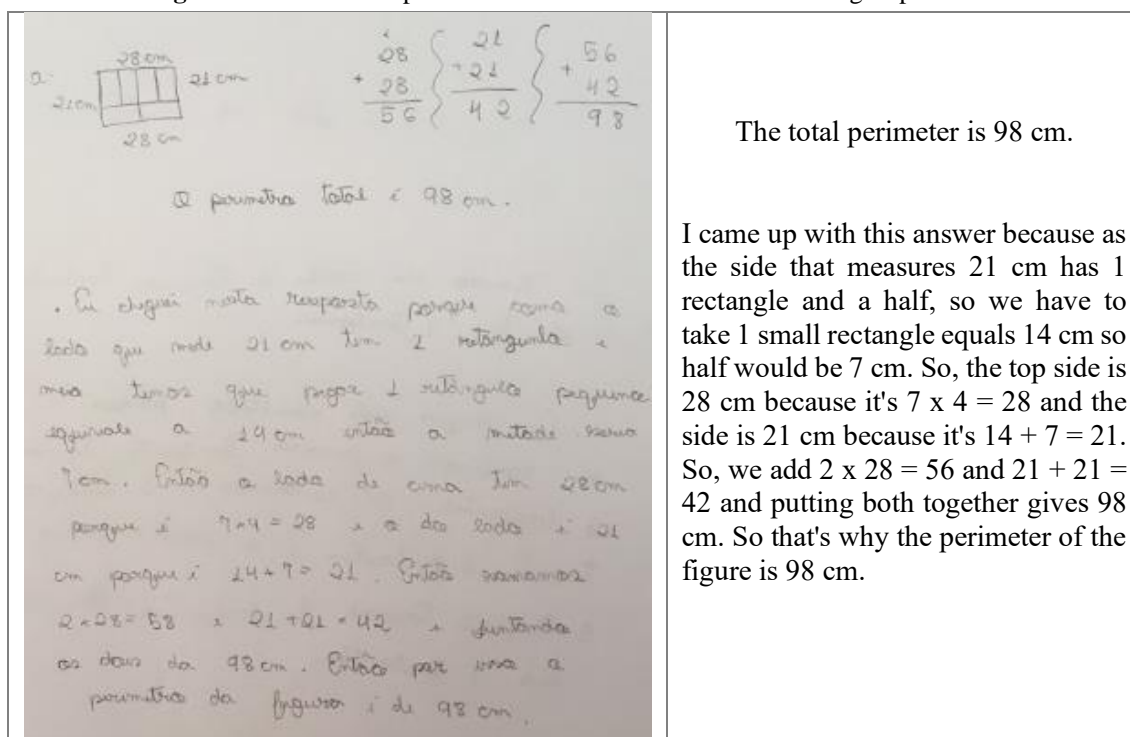 28 cm
a
21 cm
21 cm
28 cm
28
+ 28
56
21
+ 21
42
56
+ 42
98
O perimetro total é 98 cm.
. Eu cheguei nesta resposta porque como o
lado que mede 21 cm tem 1 retângunlo e
meio temos que pegar 1 retângulo pequeno
equivale a 14 cm então a metade seria
7 cm. Então o lado de cima tem 28 cm
porque é 7 x 4 = 28 e o do lado é 21
cm porque é 14 + 7 = 21. Então somamos
2 x 28 = 58 e 21 + 21 = 42 e juntando
os dois da 98 cm. Então por isso o
perimetro da figura é de 98 cm.
The total perimeter is 98 cm.
I came up with this answer because as
the side that measures 21 cm has 1
rectangle and a half, so we have to
take 1 small rectangle equals 14 cm so
half would be 7 cm. So, the top side is
28 cm because it's 7 x 4 = 28 and the
side is 21 cm because it's 14 + 7 = 21.
So, we add 2 x 28 = 56 and 21 + 21 =
42 and putting both together gives 98
cm. So that's why the perimeter of the
figure is 98 cm.